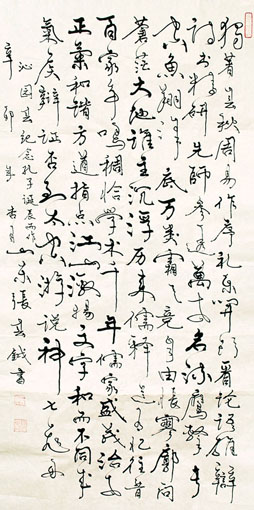 独著春秋周易作序礼乐开颜看论语雄辩
诗书精研先师参透万古名流鹰击长
空鱼翔浅底万类霜天竞自由怅寥廓问
苍茫大地谁主沉浮历来儒释道忆往昔
百家争鸣稠恰学术千年儒家盛茂治安
正气和谐方道指点江山激扬文字和而不同事
气贯辩证太空游说神七飞舟
沁园春纪念孔子诞辰而作
辛卯年杏月山东张书